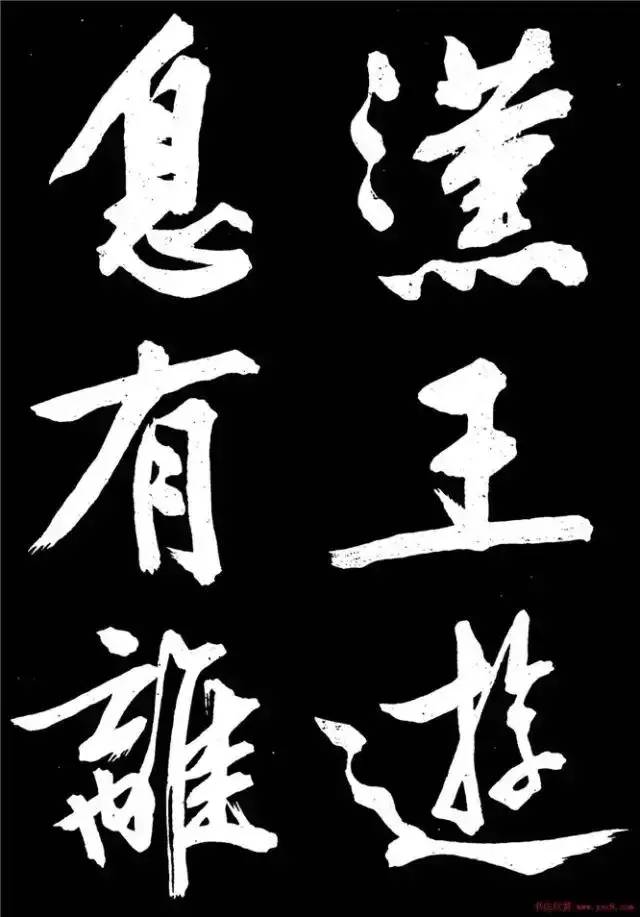 漢王遊
息有離
书法欣赏 www.yac8.com